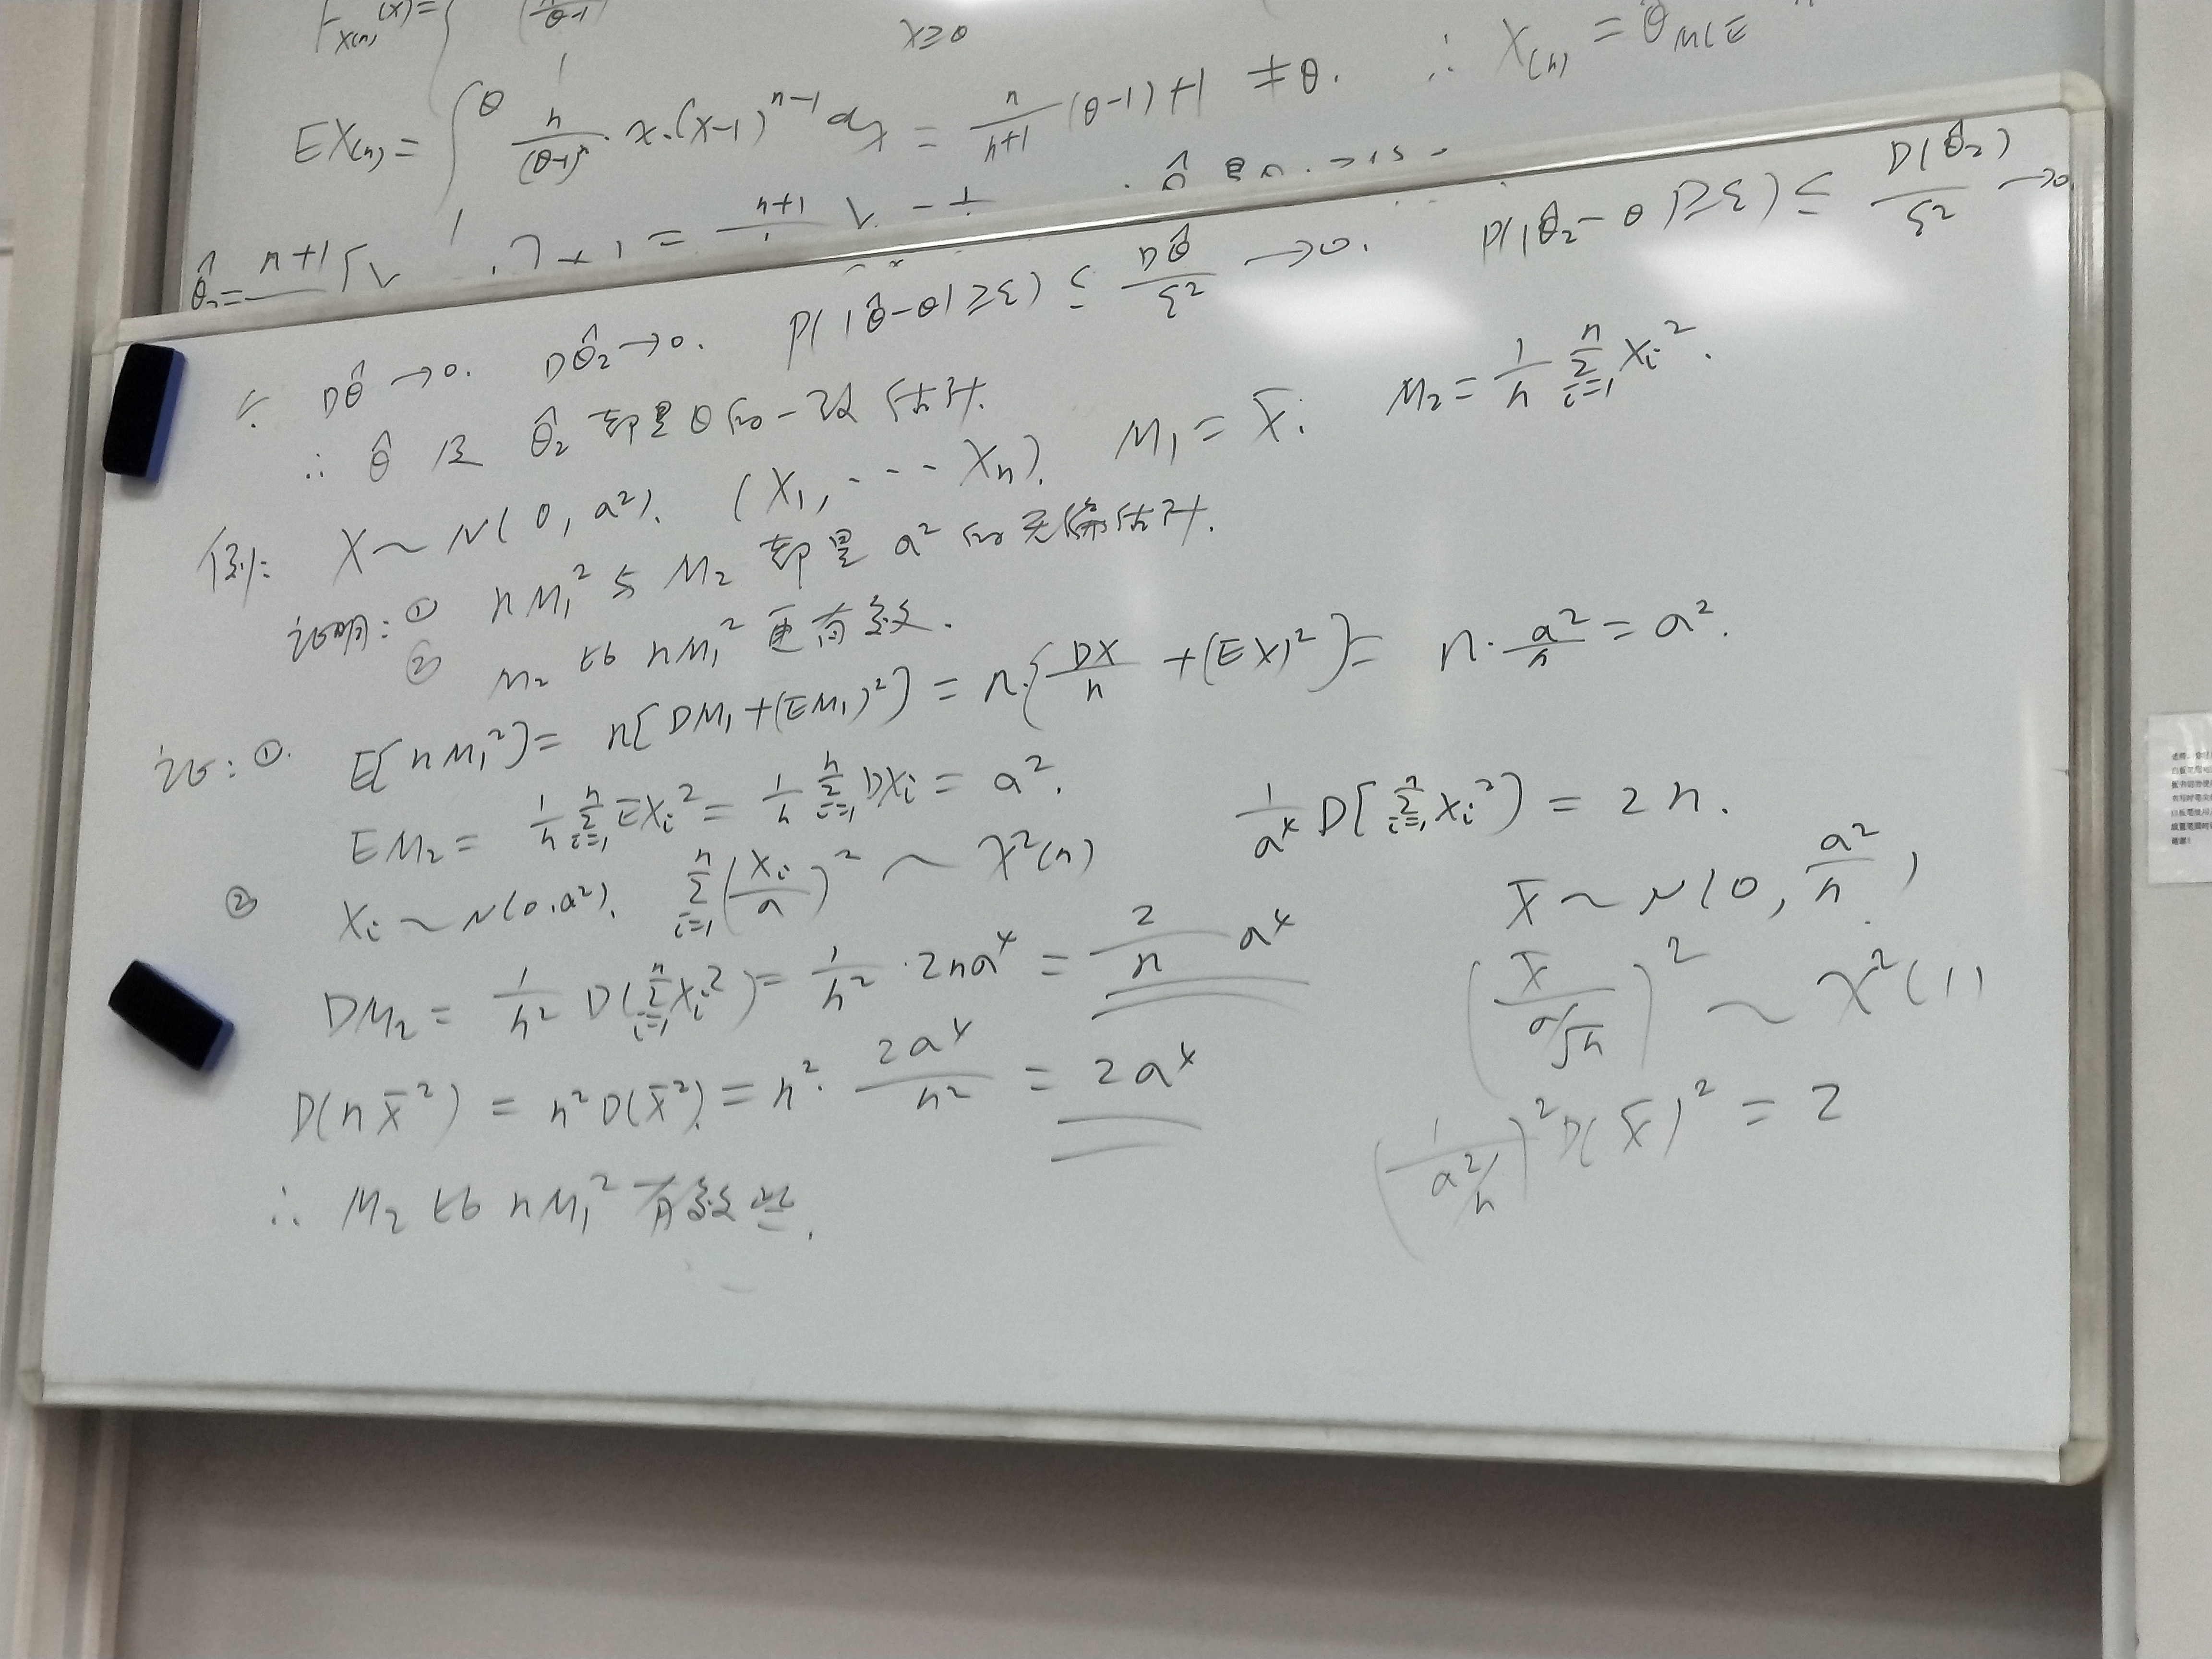 F_{X(n)}(x)=
x≥θ
EX_{(n)} = ∫_1^θ n/(θ-1)^n · x·(x-1)^{n-1} dx = n/(n+1) (θ-1)+1 ≠ θ. ∴ X_{(n)} = θ̂_{MLE}
∵ Dθ̂→0. Dθ̂₂→0. P(|θ̂-θ|≥ε) ≤ Dθ̂/ε² →0. P(|θ̂₂-θ|≥ε) ≤ D(θ̂₂)/ε² →0
∴ θ̂ 及 θ̂₂ 都是θ的一致估计.
例: X~N(0, a²). (X₁, ··· Xₙ). M₁ = X̄. M₂ = 1/n Σ_{i=1}^n Xᵢ².
证明: ① nM₁² 与 M₂ 都是 a² 的无偏估计.
② M₂ 比 nM₁² 更有效.
证: ①. E[nM₁²] = n[DM₁+(EM₁)²] = n·{DX/n + (EX)²} = n·a²/n = a².
EM₂ = 1/n Σ_{i=1}^n EXᵢ² = 1/n Σ_{i=1}^n DXᵢ = a².
② Xᵢ~N(0,a²). Σ_{i=1}^n (Xᵢ/a)² ~ χ²(n) 1/a⁴ D[Σ_{i=1}^n Xᵢ²] = 2n.
DM₂ = 1/n² D(Σ_{i=1}^n Xᵢ²) = 1/n² · 2na⁴ = 2/n a⁴
X̄ ~ N(0, a²/n)
(X̄/(a/√n))² ~ χ²(1)
D(nX̄²) = n²D(X̄²) = n²· 2a⁴/n² = 2a⁴
(1/(a²/n))² D(X̄)² = 2
∴ M₂ 比 nM₁² 有效些.